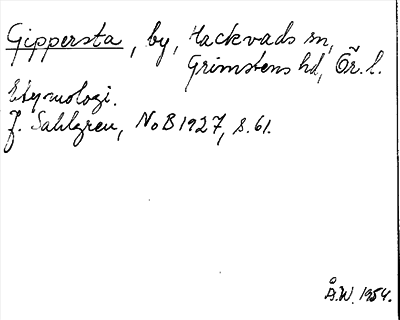 Gippersta, by, Hackvads sn,
Grimstens hd, Ör. l.
Etymologi.
J. Sahlgren, NoB 1927, s. 61.
Å.W. 1954.